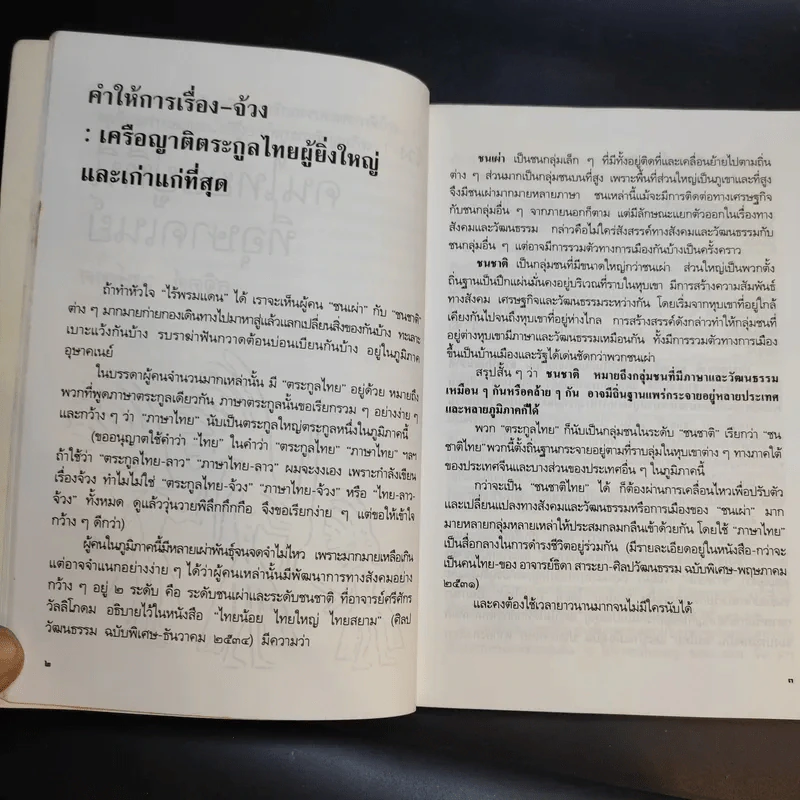 คำให้การเรื่อง-จ้วง
: เครือญาติตระกูลไทยผู้ยิ่งใหญ่
และเก่าแก่ที่สุด
ถ้าทำหัวใจ “ไร้พรมแดน” ได้ เราจะเห็นผู้คน “ชนเผ่า” กับ “ชนชาติ”
ต่าง ๆ มากมายก่ายกองเดินทางไปมาหาสู่แล้วแลกเปลี่ยนสิ่งของกันบ้าง ทะเลาะ
เบาะแว้งกันบ้าง รบราฆ่าฟันกวาดต้อนบ่อนเบียนกันบ้าง อยู่ในภูมิภาค
อุษาคเนย์
ในบรรดาผู้คนจำนวนมากเหล่านั้น มี “ตระกูลไทย” อยู่ด้วย หมายถึง
พวกที่พูดภาษาตระกูลเดียวกัน ภาษาตระกูลนั้นขอเรียกรวม ๆ อย่างง่าย ๆ
และกว้าง ๆ ว่า “ภาษาไทย” นับเป็นตระกูลใหญ่ตระกูลหนึ่งในภูมิภาคนี้
(ขออนุญาตใช้คำว่า “ไทย” ในคำว่า “ตระกูลไทย” “ภาษาไทย” ฯลฯ
ถ้าใช้ว่า “ตระกูลไทย-ลาว” “ภาษาไทย-ลาว” ผมจะงงเอง เพราะกำลังเขียน
เรื่องจ้วง ทำไมไม่ใช่ “ตระกูลไทย-จ้วง” “ภาษาไทย-จ้วง” หรือ “ไทย-ลาว-
จ้วง” ทั้งหมด ดูแล้ววุ่นวายพิลึกกึกกือ จึงขอเรียกง่าย ๆ แต่ขอให้เข้าใจ
กว้าง ๆ ดีกว่า)
ผู้คนในภูมิภาคนี้มีหลายเผ่าพันธุ์จนจดจำไม่ไหว เพราะมากมายเหลือเกิน
แต่อาจจำแนกอย่างง่าย ๆ ได้ว่าผู้คนเหล่านั้นมีพัฒนาการทางสังคมอย่าง
กว้าง ๆ อยู่ ๒ ระดับ คือ ระดับชนเผ่าและระดับชนชาติ ที่อาจารย์ศรีศักร
วัลลิโภดม อธิบายไว้ในหนังสือ “ไทยน้อย ไทยใหญ่ ไทยสยาม” (ศิลป
วัฒนธรรม ฉบับพิเศษ-ธันวาคม ๒๕๓๔) มีความว่า
๒
ชนเผ่า เป็นชนกลุ่มเล็ก ๆ ที่มีทั้งอยู่ติดที่และเคลื่อนย้ายไปตามถิ่น
ต่าง ๆ ส่วนมากเป็นกลุ่มชนบนที่สูง เพราะพื้นที่ส่วนใหญ่เป็นภูเขาและที่สูง
จึงมีชนเผ่ามากมายหลายภาษา ชนเหล่านี้แม้จะมีการติดต่อทางเศรษฐกิจ
กับชนกลุ่มอื่น ๆ จากภายนอกก็ตาม แต่มีลักษณะแยกตัวออกในเรื่องทาง
สังคมและวัฒนธรรม กล่าวคือไม่ใคร่สังสรรค์ทางสังคมและวัฒนธรรมกับ
ชนกลุ่มอื่น ๆ แต่อาจมีการรวมตัวทางการเมืองกันบ้างเป็นครั้งคราว
ชนชาติ เป็นกลุ่มชนที่มีขนาดใหญ่กว่าชนเผ่า ส่วนใหญ่เป็นพวกตั้ง
ถิ่นฐานเป็นปึกแผ่นมั่นคงอยู่บริเวณที่ราบในหุบเขา มีการสร้างความสัมพันธ์
ทางสังคม เศรษฐกิจและวัฒนธรรมระหว่างกัน โดยเริ่มจากหุบเขาที่อยู่ใกล้
เคียงกันไปจนถึงหุบเขาที่อยู่ห่างไกล การสร้างสรรค์ดังกล่าวทำให้กลุ่มชนที่
อยู่ต่างหุบเขามีภาษาและวัฒนธรรมเหมือนกัน ทั้งมีการรวมตัวทางการเมือง
ขึ้นเป็นบ้านเมืองและรัฐได้เด่นชัดกว่าพวกชนเผ่า
สรุปสั้น ๆ ว่า ชนชาติ หมายถึงกลุ่มชนที่มีภาษาและวัฒนธรรม
เหมือน ๆ กันหรือคล้าย ๆ กัน อาจมีถิ่นฐานแพร่กระจายอยู่หลายประเทศ
และหลายภูมิภาคก็ได้
พวก “ตระกูลไทย” ก็นับเป็นกลุ่มชนในระดับ “ชนชาติ” เรียกว่า “ชน
ชาติไทย” พวกนี้ตั้งถิ่นฐานกระจายอยู่ตามที่ราบลุ่มในหุบเขาต่าง ๆ ทางภาคใต้
ของประเทศจีนและบางส่วนของประเทศอื่น ๆ ในภูมิภาคนี้
กว่าจะเป็น “ชนชาติไทย” ได้ ก็ต้องผ่านการเคลื่อนไหวเพื่อปรับตัว
และเปลี่ยนแปลงทางสังคมและวัฒนธรรมหรือการเมืองของ “ชนเผ่า” มาก
มายหลายกลุ่มหลายเหล่าให้ประสมกลมกลืนเข้าด้วยกัน โดยใช้ “ภาษาไทย”
เป็นสื่อกลางในการดำรงชีวิตอยู่ร่วมกัน (มีรายละเอียดอยู่ในหนังสือ-กว่าจะ
เป็นคนไทย-ของ อาจารย์ธิดา สาระยา-ศิลปวัฒนธรรม ฉบับพิเศษ-พฤษภาคม
๒๕๓๑)
และคงต้องใช้เวลายาวนานมากจนไม่มีใครนับได้
๓